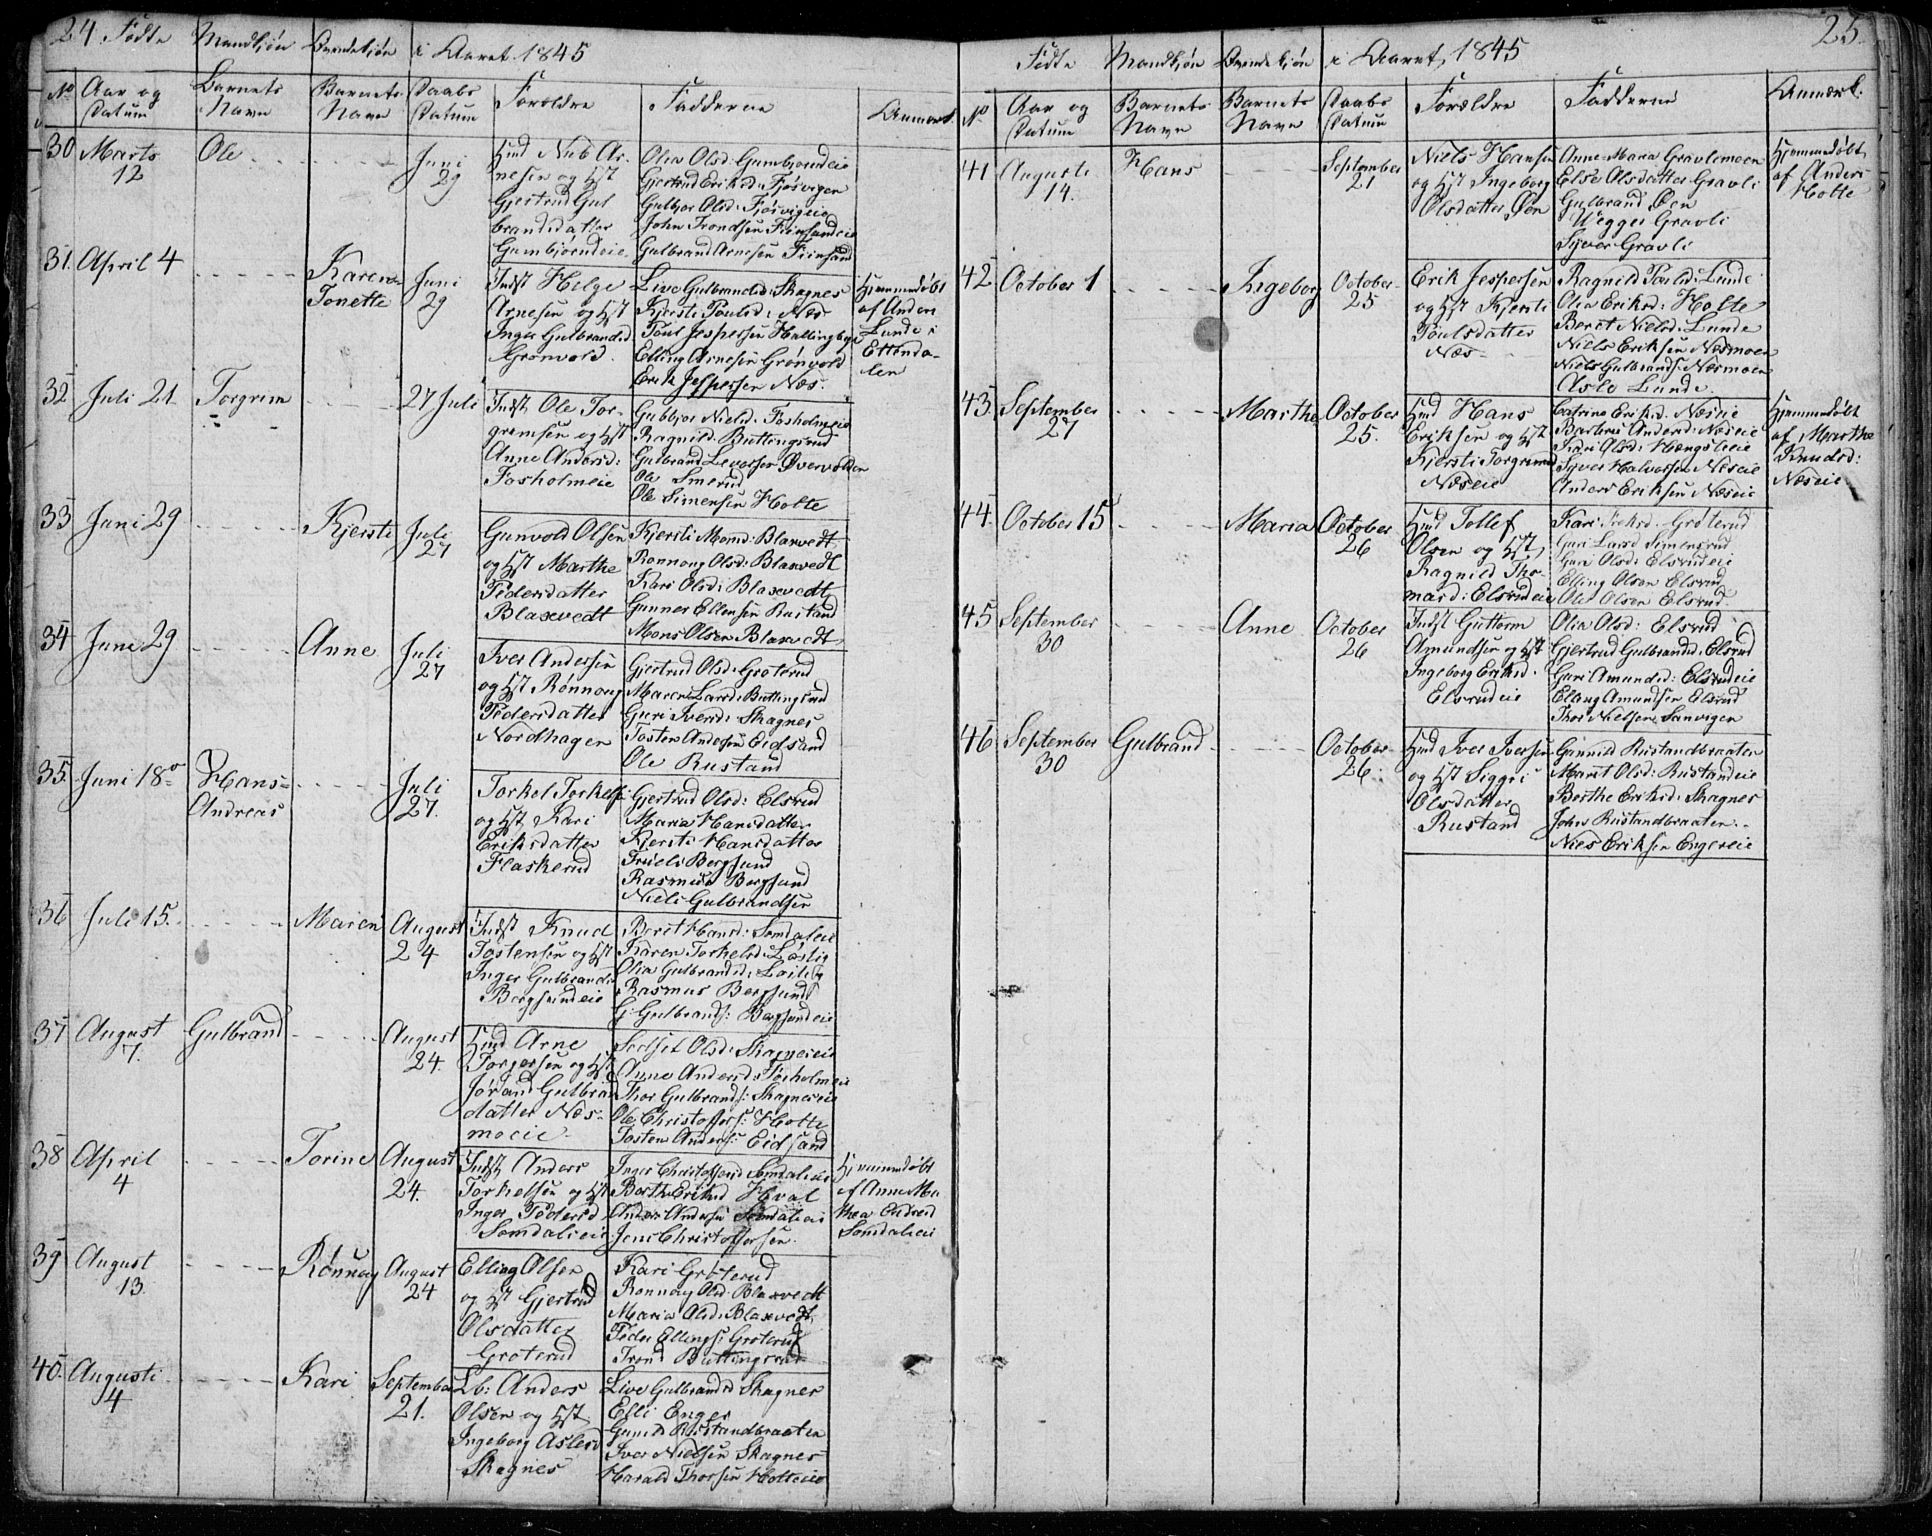 24. Fødte Mandkjøn Qvindekjøn i Aaret 1845
No Aar og Datum Barnets Navn Barnets Navn Daabs Datum Forældre Fadderne Anmerk.
30 Marts 12 Ole Juni 29
Hmd Nub Ar-
nesen og Hst
Gjertrud Gul
brandsdatter
Gumbjørndeie
Olia Olsd: Gumbjørndeie
Gjertrud Eriksd: Fjøsvigen
Gulbjør Olsd: Fjøsvigeie
John Trondsen Fiinsandeie
Gulbrand Arnesen Fiinsand
31. April 4 Karen Tonette Juni 29
Indst Helge
Arnesen og Hst
Inger Gulbrandsd
Grønvold.
Live Gulbrandsd: Skagnes
Kjersti Poulsd: Næs
Poul Jespersen Hallingbye
Elling Arnesen Grønvold
Erik Jespersen Næs.
Hjemmedøbt
af Anders
Lunde i
Ettenda-
len
32 Juli 21 Torgrim 27 Juli
Indst Ole Tor-
gremsen og Hst
Anne Andersd:
Fosholmeie
Gubbjør Nielsd: Fosholmeie
Ragnild Buttingsrud
Gulbrand Leversen Øvervolden
Ole Smerud
Ole Simensen Holte
33 Juni 29 Kjersti Juli 27
Gunvold Olsen
og Hst Marthe
Pedersdatter
Blaxevedt
Kjersti Monsd: Blaxvedt
Rønnong Olsd: Blaxvedt
Kari Olsd: Blaxevedt
Gunner Ellensen Rustand
Mons Olsen Blaxvedt
34 Juni 29 Anne Juli 27
Iver Andersen
og Hst Rønnong
Pedersdatter
Nordhagen
Gjertrud Olsd: Grøterud
Maren Larsd: Buttingsrud
Guri Iversd: Skagnes
Tosten Andersen Eidsand
Ole Rustand
35. Juni 18 Hans Andreas Juli 27.
Torkel Torkels:
og Hst Kari
Eriksdatter
Flaskerud
Gjertrud Olsd: Elsrud
Maria Hansdatter
Kjersti Hansdatter
Truels Bergsund
Rasmus Bergsund
Niels Gulbrandsen
36 Juli 15. Maren August 24
Indst Knud
Tostensen og Hst
Inger Gulbrandsd
Bergsundeie
Berit Hansd: Somdaleie
Karen Torkelsd: Løslig
Olia Gulbrandsd:
Rasmus Bergsund
G: Gulbrands: Bergsundeie
37 August 7. Gulbrand August 24.
Hmd Arne
Torgersen og Hst
Jørand Gulbrands
datter Næs-
moeie
Sedset Olsd: Skagneseie
Anne Andersd: Fosholmeie
Thor Gulbrands: Skagneseie
Ole Christoffers: Holte
Tosten Anders: Eidsand
38 April 4 Torine August 24.
Indst Anders
Torkelsen og Hst
Inger Pedersd
Somdalieie
Inger Christoffersd Somdalieie
Berthe Eriksd Hval
Anders Andersen Somdalieie
Jens Christoffersen.
Hjemmedøbt
af Anne Ma
thea Endresd
Somdalieie
39 August 13. Rønnøy August 24
Elling Olsen
og Hst Gjertrud
Olsdatter
Grøterud
Kari Grøterud
Rønnøy Olsd: Blaxevedt
Maria Olsd: Blaxevedt
Peder Ellings: Grøterud
Trond Buttingsrud
40. Augusti 4 Kari September 21.
Lb: Anders
Olsen og Hst
Ingeborg Aslesd
Skagnes
Live Gulbrandsd Skagnes
Elli Enger
Gunild Rustandbraaten
Iver Nielsen Skagnes
Harald Thorsen Holteeie
Fødte Mandkjøn Qvindekjøn i Aaret, 1845 25.
No Aar og Datum Barnets Navn Barnets Navn Daabs Datum Forældre Fadderne Anmerk:
41 Augusti 14. Hans September 21
Niels Hansen
og Hst Ingeborg
Olsdatter Øen
Anne Maria Gravlemoen
Else Olsdatter Gravli
Gulbrand Øen
Vegger Gravli
Syver Gravli
Hjemmedøbt
af Anders
Holte
42 October 1 Ingeborg October 25
Erik Jespersen
og Hst Kjersti
Poulsdatter
Næs
Ragnild Poulsd: Lunde
Olia Eriksd: Holte
Berit Nielsd: Lunde
Niels Eriksen Næsmoen
Niels Gulbrands: Næsmoen
Asle Lunde
43. September 27 Marthe October 25.
Hmd Hans
Eriksen og Hst
Kjersti Torgrimsd
Næseie
Catrine Eriksd. Næseie
Barbroe Andersd: Næseie
Kari Olsd: Hængslieie
Syver Halvorsen Næseie
Anders Eriksen Næseie
Hjemmedøbt
af Marthe
Knudsd:
Næseie
44. October 15 Maria October 26
Hmd Tollef
Olsen og Hst
Ragnild Tho-
masd: Elsrudeie
Kari Grøterud
Guri Larsd Simensrud
Guri Olsd: Elsrudeie
Elling Olsen Elsrud
Ole Olsen Elsrud.
45 September 30 Anne October 26
Indst Guttorm
Amundsen og Hst
Ingeborg Eriksd.
Elsrudeie
Olia Olsd: Elsrud
Gjertrud Gulbrandsd: Elsrud
Guri Amundsd: Elsrudeie
Elling Amundsen Elsrud
Thor Nielsen Sanvigen
46 September 30 Gulbrand October 26.
Hmd Iver Iversen
og Hst Siggri
Olsdatter
Rustand
Gunnild Rustandbraaten
Marit Olsd: Rustandeie
Berthe Eriksd: Skagnes
John Rustandbraaten.
Niels Eriksen Engereie